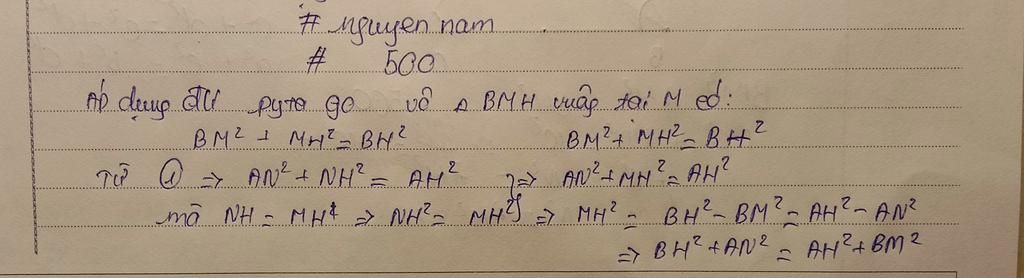 # nguyen nam
# 500
Áp dụng đlí pytago vô Δ BMH vuông tại M có:
BM² + MH² = BH² BM² + MH² = BH²
Từ ① ⇒ AN² + NH² = AH² } ⇒ AN² + MH² = AH²
mà NH = MH ⇒ NH² = MH² } ⇒ MH² = BH² - BM² = AH² - AN²
⇒ BH² + AN² = AH² + BM²